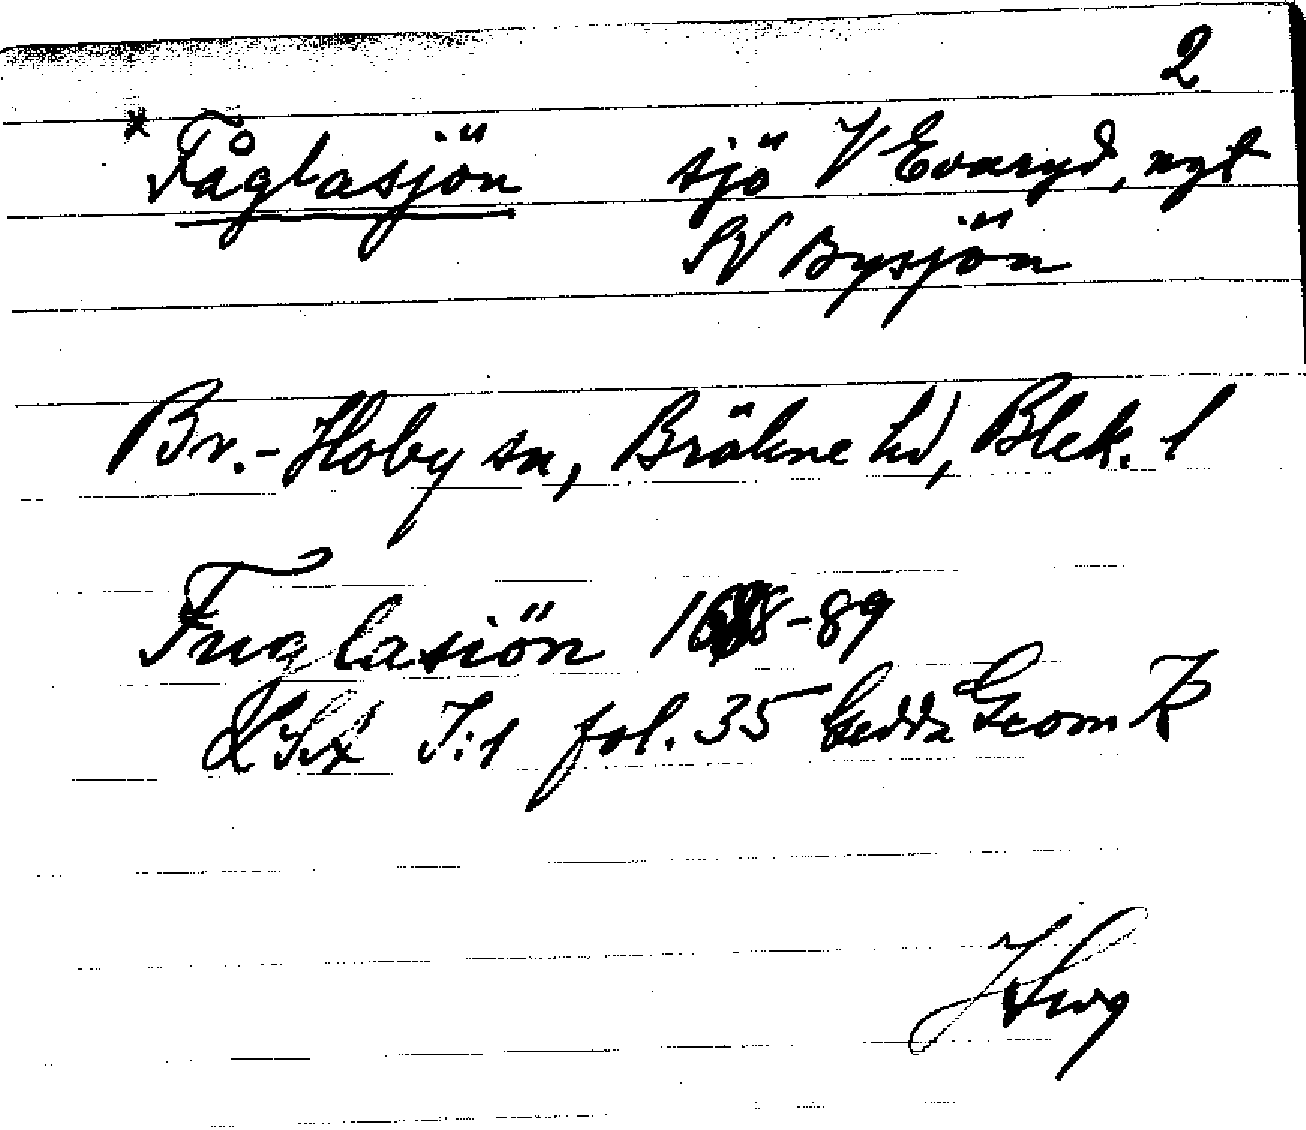 2
* Fåglasjön sjö V Evaryd, ngt
SV Bysjön
Br.-Hoby sn, Bräkne hd, Blek. l
Fuglasiön 1688-89
I:1 fol. 35 Gedda Geom K